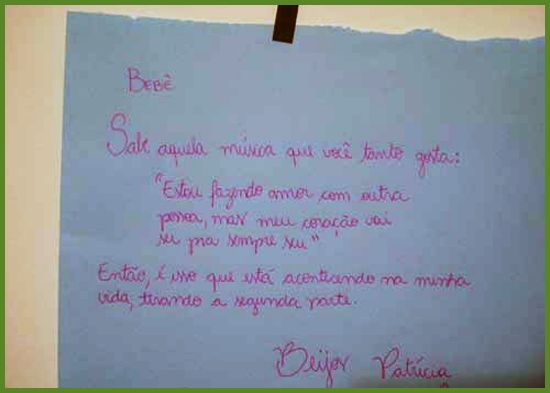 BEBÊ
Sabe aquela música que você tanto gosta:
"Estou fazendo amor com outra
pessoa, mas meu coração vai
ser pra sempre seu"
Então, é isso que está acontecendo na minha
vida, tirando a segunda parte.
Beijos Patrícia